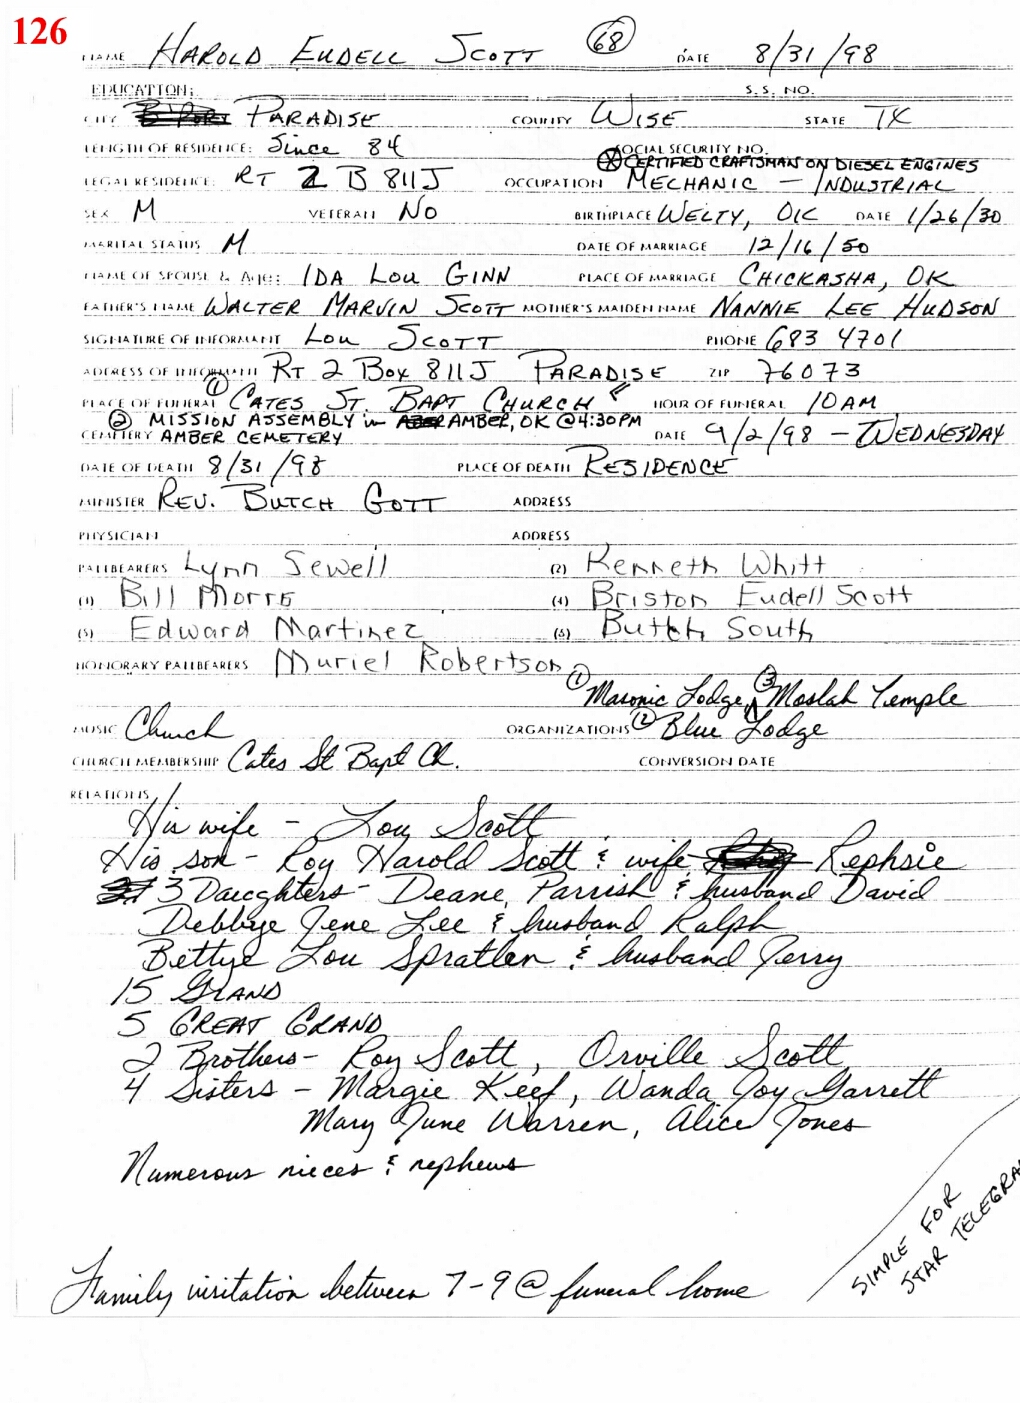 126
NAME HAROLD EUDELL SCOTT 68 DATE 8/31/98
EDUCATION: S.S. NO.
CITY PARADISE COUNTY WISE STATE TX
LENGTH OF RESIDENCE: Since 84 SOCIAL SECURITY NO.
CERTIFIED CRAFTSMAN ON DIESEL ENGINES
LEGAL RESIDENCE: RT 2 B 811J OCCUPATION MECHANIC – INDUSTRIAL
SEX M VETERAN NO BIRTHPLACE WELTY, OK DATE 1/26/30
MARITAL STATUS M DATE OF MARRIAGE 12/16/50
NAME OF SPOUSE & Age: IDA LOU GINN PLACE OF MARRIAGE CHICKASHA, OK
FATHER'S NAME WALTER MARVIN SCOTT MOTHER'S MAIDEN NAME NANNIE LEE HUDSON
SIGNATURE OF INFORMANT LOU SCOTT PHONE 683 4701
ADDRESS OF INFORMANT RT 2 BOX 811J PARADISE ZIP 76073
PLACE OF FUNERAL ① CATES ST. BAPT CHURCH HOUR OF FUNERAL 10AM
② MISSION ASSEMBLY in AMBER, OK @ 4:30PM
CEMETERY AMBER CEMETERY DATE 9/2/98 – WEDNESDAY
DATE OF DEATH 8/31/98 PLACE OF DEATH RESIDENCE
MINISTER REV. BUTCH GOTT ADDRESS
PHYSICIAN ADDRESS
PALLBEARERS Lynn Sewell (2) Kenneth Whitt
(3) Bill Morre (4) Briston Eudell Scott
(5) Edward Martinez (6) Butch South
HONORARY PALLBEARERS Muriel Robertson
① Masonic Lodge, ③ Moslah Temple
MUSIC Church ORGANIZATIONS ② Blue Lodge
CHURCH MEMBERSHIP Cates St Bapt Ch. CONVERSION DATE
RELATIONS
His wife – Lou Scott
His son – Roy Harold Scott & wife Rephsie
3 Daughters – Deane Parrish & husband David
Debbye Jene Lee & husband Ralph
Bettye Lou Spratlen & husband Jerry
15 GRAND
5 GREAT GRAND
2 Brothers – Roy Scott, Orville Scott
4 Sisters – Margie Keef, Wanda Joy Garrett
Mary June Warren, Alice Jones
Numerous nieces & nephews
SIMPLE FOR
STAR TELEGRAM
Family visitation between 7-9 @ funeral home